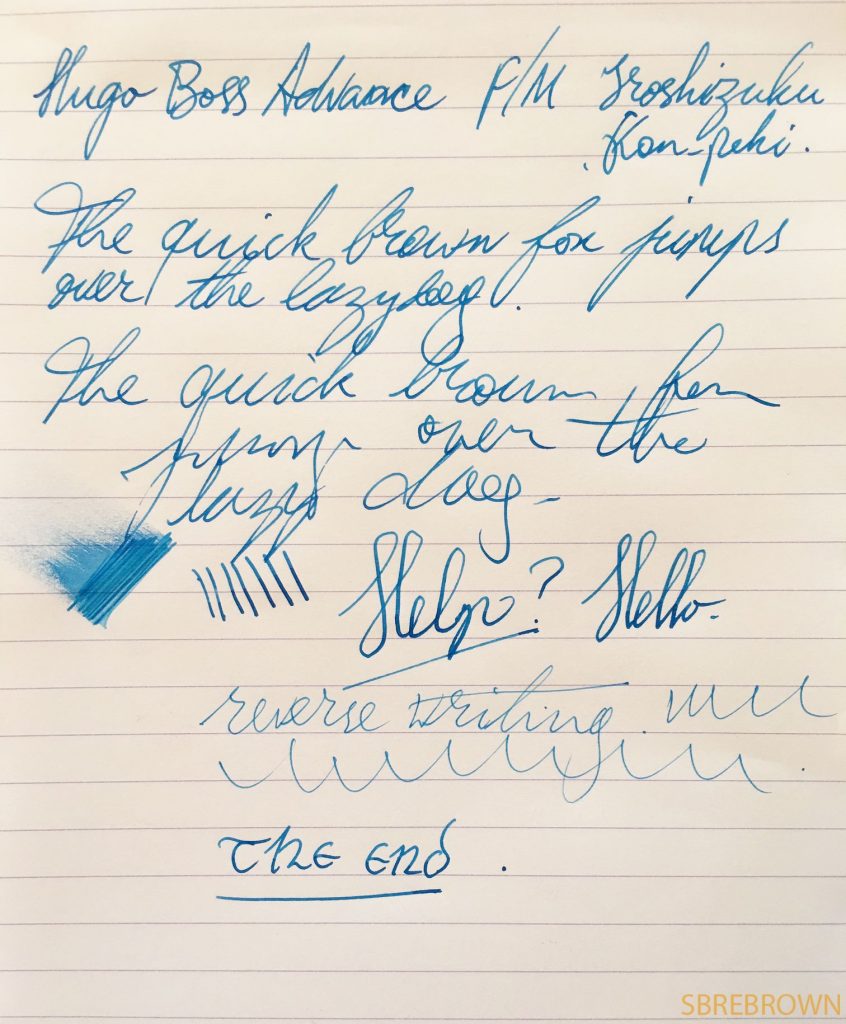 Hugo Boss Advance F/M Iroshizuku
Kon-peki.
The quick brown fox jumps
over the lazy dog.
The quick brown fox
jumps over the
lazy dog-
Help? Hello.
reverse writing.
The End.
SBREBROWN